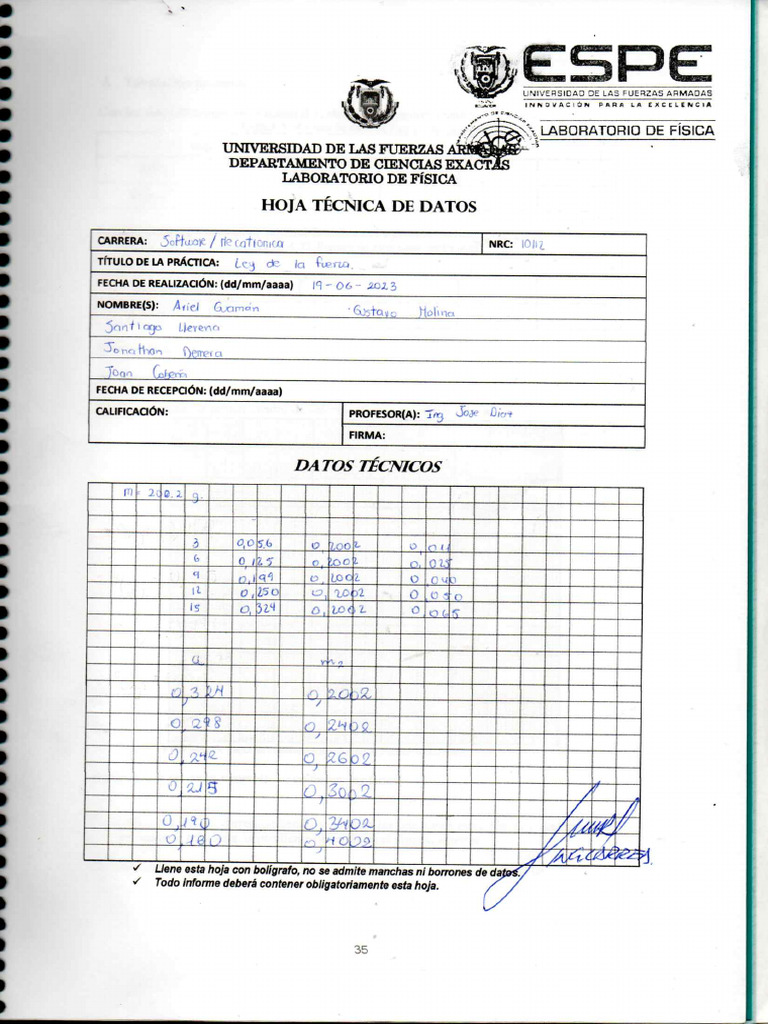 ESPE
UNIVERSIDAD DE LAS FUERZAS ARMADAS
INNOVACIÓN PARA LA EXCELENCIA
LABORATORIO DE FÍSICA
UNIVERSIDAD DE LAS FUERZAS ARMADAS
DEPARTAMENTO DE CIENCIAS EXACTAS
LABORATORIO DE FÍSICA
HOJA TÉCNICA DE DATOS
CARRERA: Software/Mecatronica NRC: 10112
TÍTULO DE LA PRÁCTICA: Ley de la fuerza.
FECHA DE REALIZACIÓN: (dd/mm/aaaa) 19-06-2023
NOMBRE(S): Ariel Guamán Gustavo Molina
Santiago Llerena
Jonathan
Joan
FECHA DE RECEPCIÓN: (dd/mm/aaaa)
CALIFICACIÓN: PROFESOR(A): Ing Jose
FIRMA:
DATOS TÉCNICOS
m= 200.2 g.
3 0,056 0,2002 0,011
6 0,125 0,2002 0,025
9 0,199 0,2002 0,040
12 0,250 0,2002 0,050
15 0,324 0,2002 0,065
a m2
0,324 0,2002
0,298 0,2402
0,242 0,2602
0,215 0,3002
0,190 0,3402
0,160 0,4002
✓ Llene esta hoja con bolígrafo, no se admite manchas ni borrones de datos.
✓ Todo informe deberá contener obligatoriamente esta hoja.
35